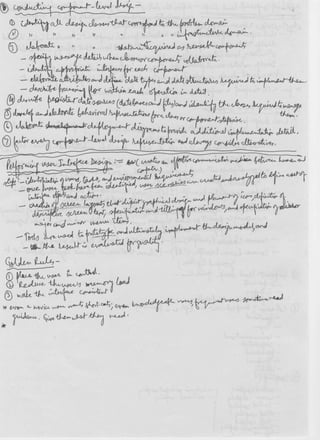 conducting component-level design -
① identify all design classes that correspond to the problem domain
② " " " " " " " infrastructure domain.
③ elaborate " " that are not required as reusable components
- specify message details when classes or components collaborate
- identify appropriate interfaces for each component
- elaborate attributes and define data types and data structures required to implement them
- describe processing flow within each operation in detail.
④ describe persistent data sources (databases and files) and identify the classes required to manage them.
⑤ develop and elaborate behavioral representations for a class or component
⑥ elaborate deployment diagrams to provide additional implementation detail.
⑦ factor every component-level design representation and always consider alternatives.
Performing User Interface Design :- creates an effective communication medium between human and computer
- identification of user, task, and environmental requirements
- once user tasks have been identified, user scenarios are created and analyzed to define a set of interface objects and actions.
- creation of screen layout that depict graphical design and placement of icons, definition of descriptive screen text, specification and titling for windows, and specification of major and minor menu items.
- Tools are used to prototype and ultimately implement the design model, and
- the result is evaluated for quality
Golden Rules -
① Place the user in control.
② Reduce the user's memory load
③ make the interface consistent
* even a novice user wants short-cuts; even knowledgeable users sometimes need
guidance. Give them what they need.